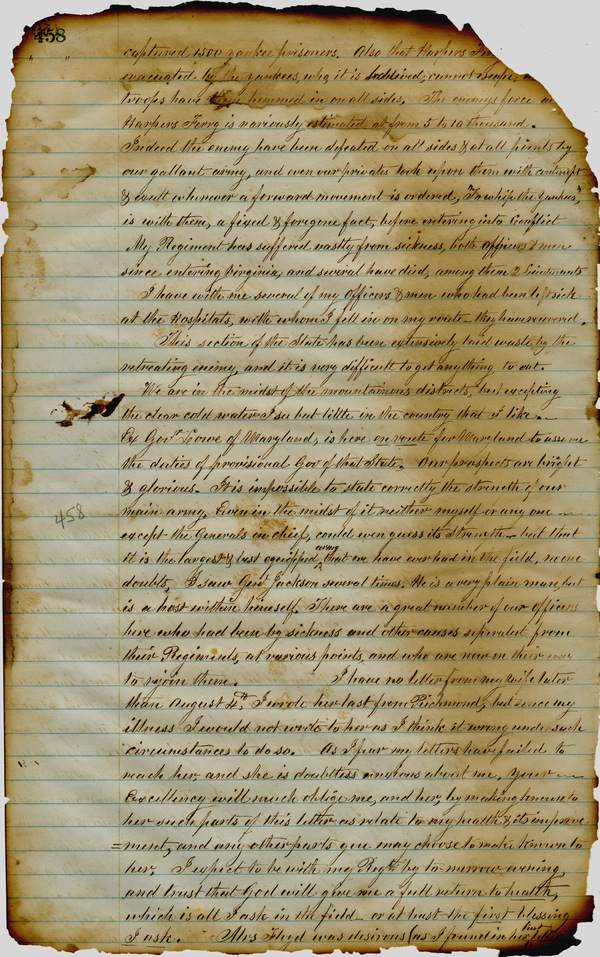 458
captured 1500 yankee prisoners. Also that Harpers
evacuated by the yankees, why it is cannot escape,
troops have them hemmed in on all sides. The enemys force at
Harpers Ferry is variously estimated at from 5 to 10 thousand.
Indeed the enemy have been defeated on all sides & at all points by
our gallant army, and even our privates look upon them with contempt
& exult whenever a forward movement is ordered, "To whip the Yankees,"
is with them, a fixed & foregone fact, before entering into Conflict
My Regiment has suffered vastly from sickness, both officers & men
since entering Virginia, and several have died, among them 2 Lieutenants
I have with me several of my Officers & men who had been left sick
at the Hospitals, with whom I fell in on my route - they have recovered.
This section of the State has been extensively laid waste by the
retreating enemy, and it is very difficult to get anything to eat.
We are in the midst of the mountainous districts, but excepting
the clear cold water I see but little in the country that I like -
Ex Govr Lowe of Maryland, is here en route for Maryland to assume
the duties of provisional Gov of that State. Our prospects are bright
& glorious. It is impossible to state correctly the strength of our
458
main army. Even in the midst of it neither myself or any one -
except the Generals in chief, could even guess its strength - but that
it is the largest & best equipped army that we have ever had in the field, no one
doubts. I saw Genl Jackson several times. He is a very plain man, but
is a host within himself. There are a great number of our officers
here who had been by sickness and other causes seperated from
their Regiments, at various points, and who are now on their way
to rejoin them. I have no letter from my wife later
than August 4th, I wrote her last from Richmond, but since my
illness I would not write to her as I think it wrong under such
circumstances to do so. As I fear my letters have failed to
reach her, and she is doubtless anxious about me, your -
Excellency will much oblige me, and her, by making known to
her such parts of this letter as relate to my health & its improve
=ment, and any other parts you may choose to make known to
her. I expect to be with my Regt by to-morrow evening
and trust that God will give me a full return to health,
which is all I ask in the field or at least the first blessing
I ask. Mrs Floyd was desirous (as I found in her last letter